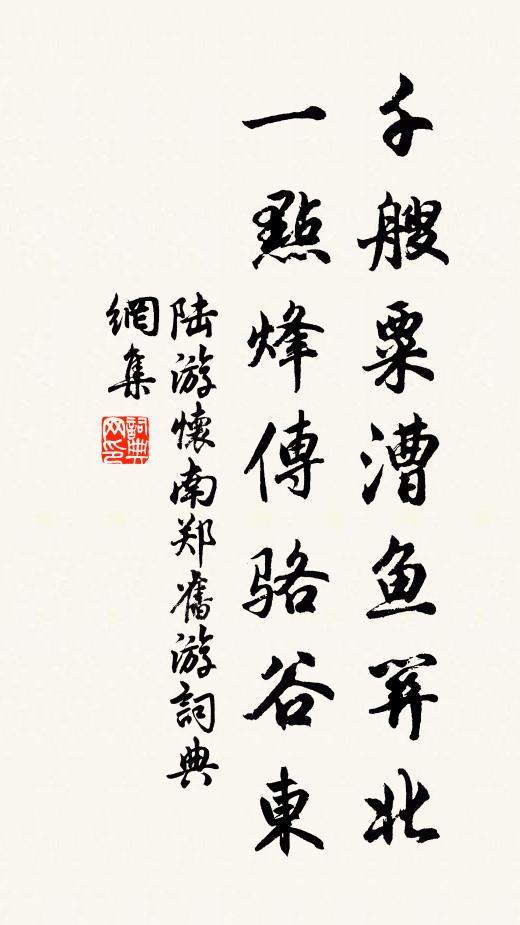 千艘粟漕鱼關北
一點烽傳骆谷東
陆游懷南郑舊游詞典
網集
詞典
网印